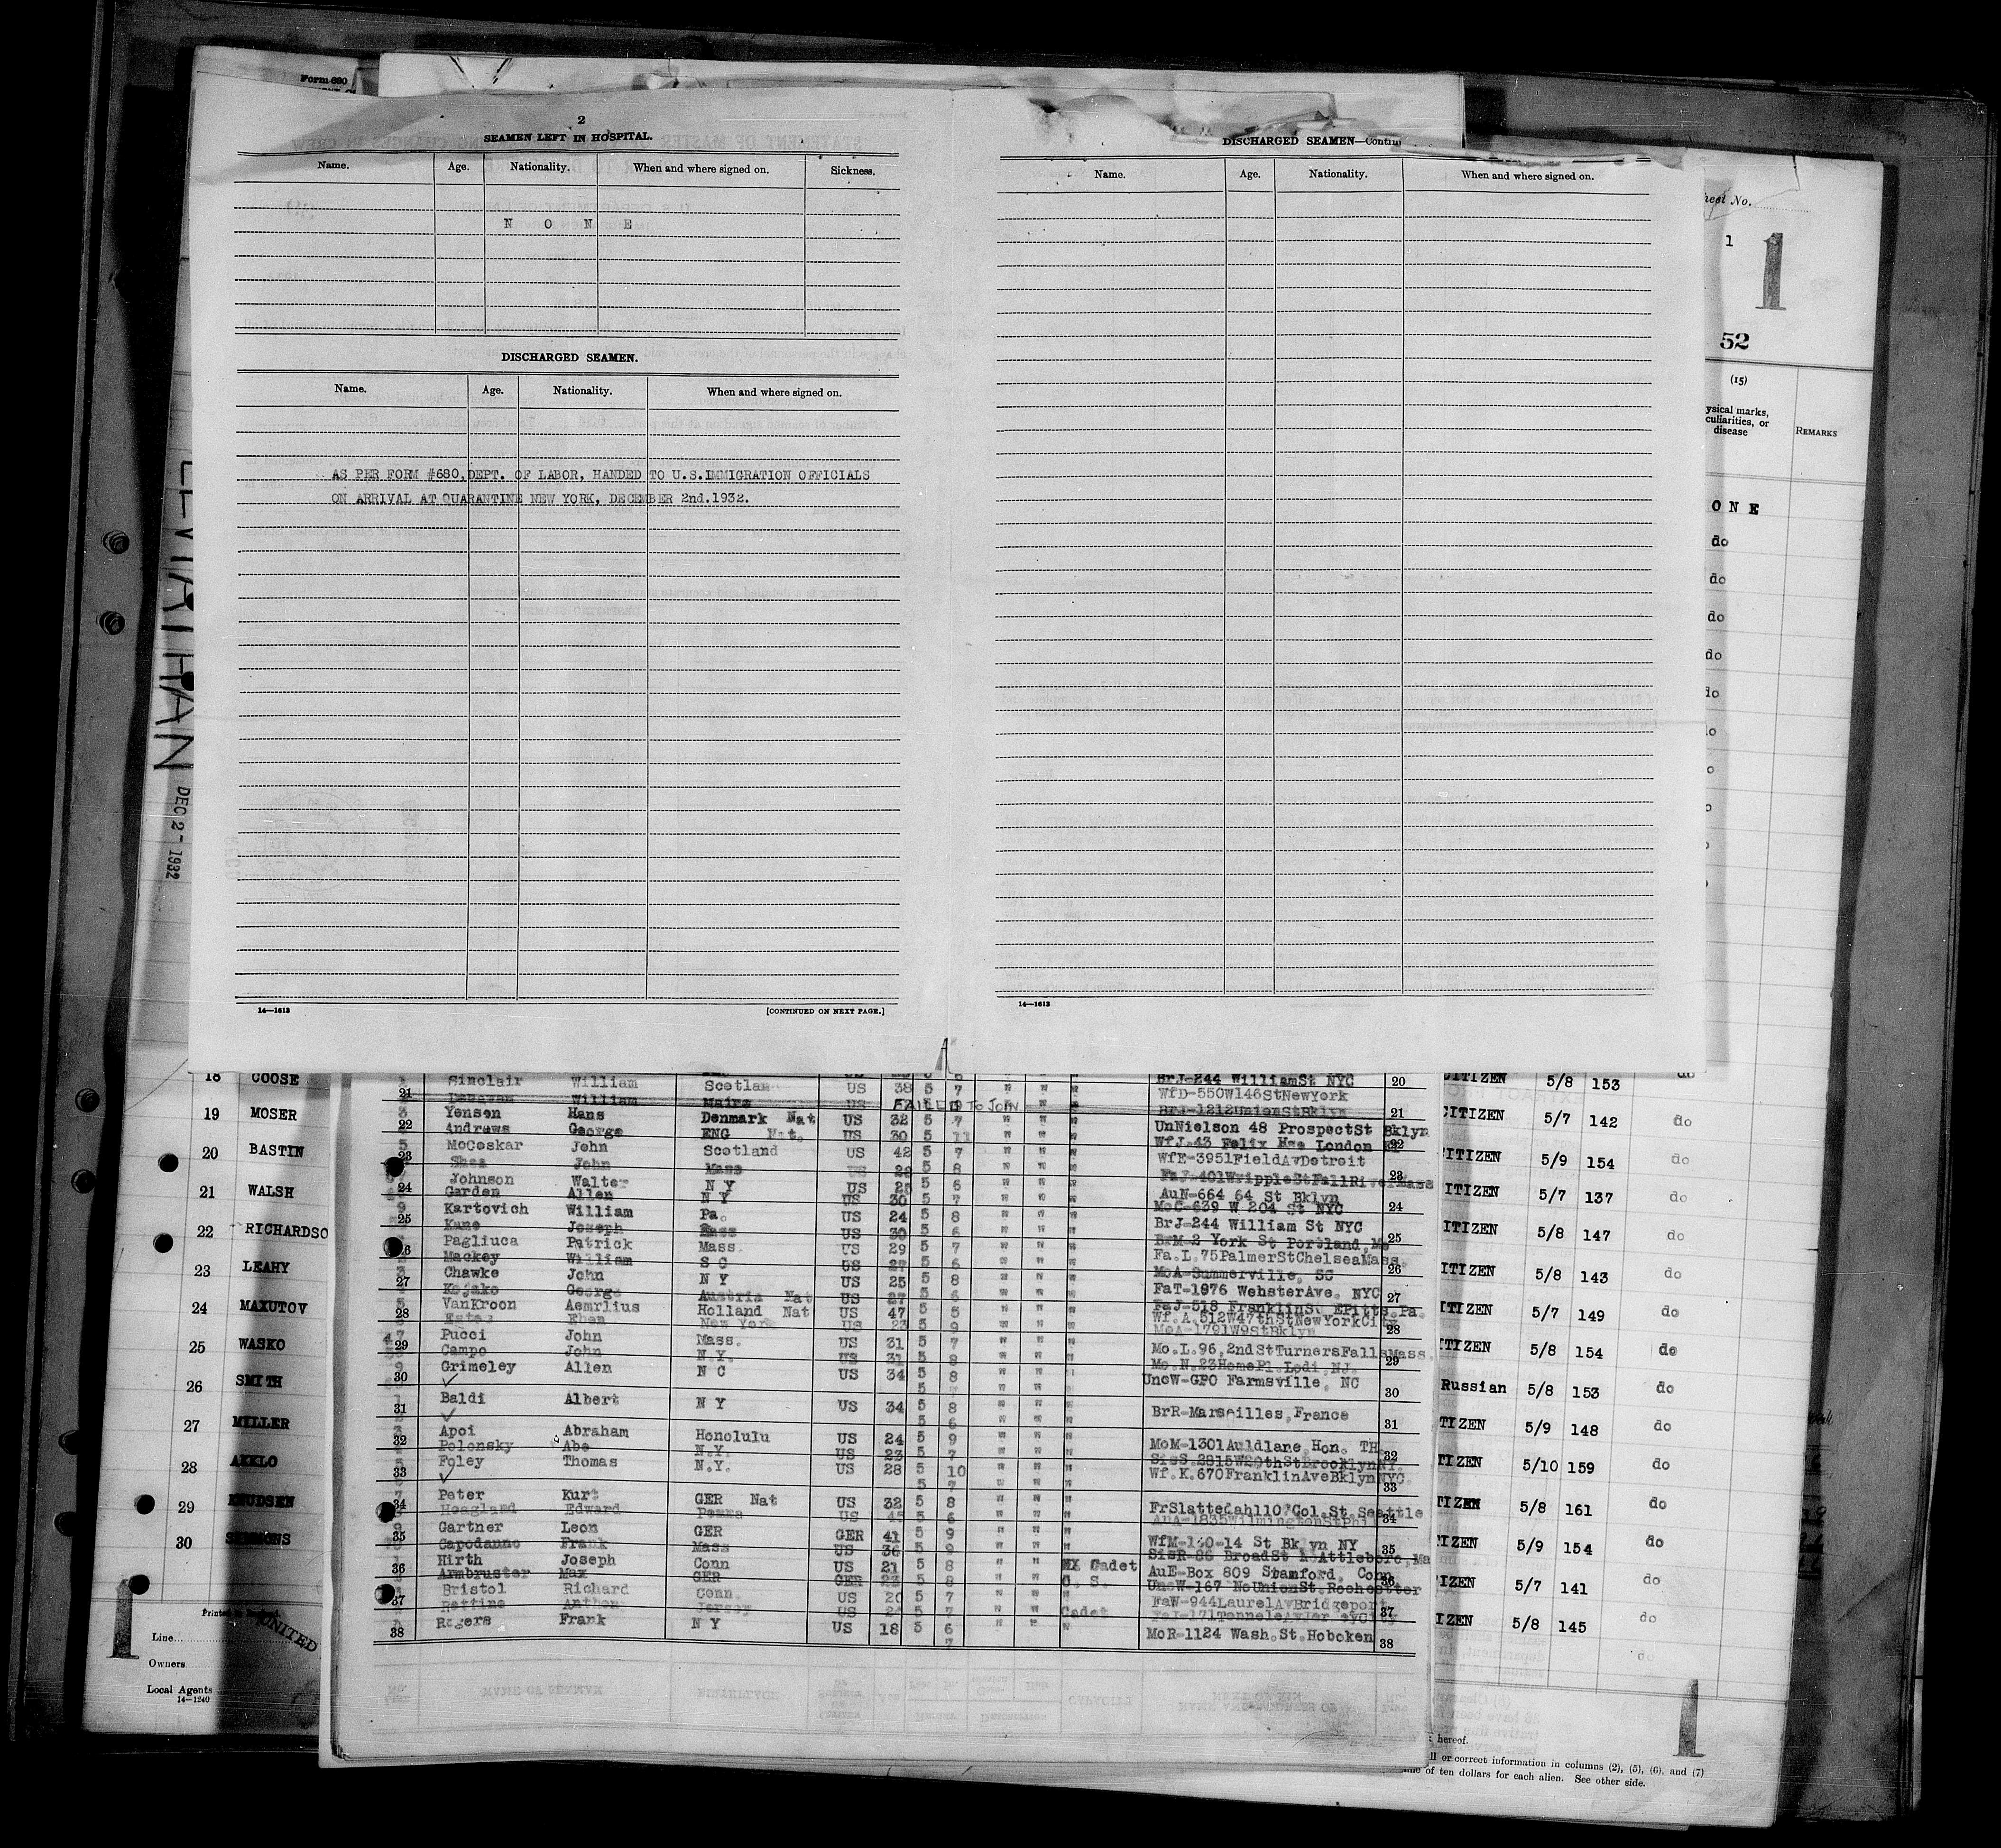 Form 680
2
SEAMEN LEFT IN HOSPITAL.
Name. Age. Nationality. When and where signed on. Sickness.
N O N E
DISCHARGED SEAMEN.
Name. Age. Nationality. When and where signed on.
AS PER FORM #680, DEPT. OF LABOR, HANDED TO U.S. IMMIGRATION OFFICIALS
ON ARRIVAL AT QUARANTINE NEW YORK, DECEMBER 2nd. 1932.
14—1613 [CONTINUED ON NEXT PAGE.]
DISCHARGED SEAMEN—Contin
Name. Age. Nationality. When and where signed on.
14—1613
LEVIATHAN DEC 2 - 1932
heet No.
1 1
52
(15)
ysical marks,
culiarities, or
disease
REMARKS
O N E
do
do
do
do
do
18 COOSE
19 MOSER
20 BASTIN
21 WALSH
22 RICHARDSO
23 LEAHY
24 MAXUTOV
25 WASKO
26 SMITH
27 MILLER
28 AKKLO
29 KNUDSEN
30 SIMMONS
1
UNITED
Line
Owners
Local Agents
14—1240
Sinclair William Scotlan US 38 5 7 " " "
BrJ-244 WilliamSt NYC 20
WfD-550W146StNewYork
21 William US FAILED TO JOIN
BrJ-1212UnionStBklyn 21
Yensen Hans Denmark Nat US 32 5 7 " " " UnNielson 48 ProspectSt Bklyn
22 Andrews George ENG Nat. US 30 5 11 " " " WfJ-43 Felix Hse London 22
McCoskar John Scotland US 42 5 7 " " " WfE-3951FieldAvDetroit
23 Shea John Mass 5 8 " " " 23
Johnson Walter N Y US 5 6 " " " AuN-664 64 St Bklyn
24 Garden Allen N Y US 30 5 7 " " " MoC-639 W 204 St NYC 24
Kartovich William Pa. US 24 5 8 " " " BrJ-244 William St NYC
25 Kane Joseph Mass US 30 5 6 " " " BrM-2 York St Portland, Me 25
Pagliuca Patrick Mass. US 29 5 7 " " " Fa.L.75PalmerStChelseaMass.
Mackey William S C US 27 5 6 " " " MoA-Summerville, SC 26
Chawke John N Y US 25 5 8 " " " FaT-1976 WebsterAve. NYC
27 Kojake George Austria Nat US 27 5 6 " " " 27
VanKroon Aemrlius Holland Nat US 47 5 5 " " " Wf.A.512W47thStNewYorkCity
28 Estes Eben New York US 23 5 9 " " " MoA-1791W9StBklyn 28
Pucci John Mass. US 31 5 7 " " " Mo.L.96,2ndStTurnersFallsMass.
29 Campo John N.Y. US 31 5 8 " " Mo.N.23HomePl.Lodi,NJ. 29
Grimeley Allen N C US 34 5 8 " " UncW-GPO Farmsville, NC
30 5 30
Baldi Albert N Y US 34 5 8 " " " BrR-Marseilles,France
31 5 6 " " " 31
Apoi Abraham Honolulu US 24 5 9 " " " MoM-1301Auldlane,Hon. TH
32 Polonsky Abe N.Y. US 23 5 7 " " " 32
Foley Thomas N.Y. US 28 5 10 " " " Wf.K.670FranklinAveBklynNYC.
33 5 7 " " " 33
Peter Kurt GER Nat US 32 5 8 " " " FrSlattedahl10 Col.St.Seattle
34 Hoagland Edward Penna US 45 5 6 " " " 34
Gartner Leon GER GER 41 5 9 " " " WfM-140-14 St Bklyn NY
35 Capodanno Frank Mass US 36 5 9 " " " SisR-86 BroadSt N Attleboro,Ma 35
Hirth Joseph Conn US 21 5 8 " " EX Cadet AuE-Box 809 Stamford, Conn
36 Armbruster Max GER GER 23 5 8 " " C. S. UncW-167 NoUnionSt.Rochester 36
Bristol Richard Conn. US 20 5 7 " " " FaW-944LaurelAvBridgeport
37 Jersey US 5 7 " " Cadet 37
Rogers Frank N Y US 18 5 6 " " " MoR-1124 Wash.St.Hoboken
38 38
CITIZEN 5/8 153 do
CITIZEN 5/7 142 do
ITIZEN 5/9 154 do
ITIZEN 5/7 137 do
ITIZEN 5/8 147 do
ITIZEN 5/8 143 do
ITIZEN 5/7 149 do
ITIZEN 5/8 154 do
Russian 5/8 153 do
TIZEN 5/9 148 do
TIZEN 5/10 159 do
TIZEN 5/8 161 do
IZEN 5/9 154 do
IZEN 5/7 141 do
IZEN 5/8 145 do
1
hereof.
ll or correct information in columns (2), (5), (6), and (7)
of ten dollars for each alien. See other side.